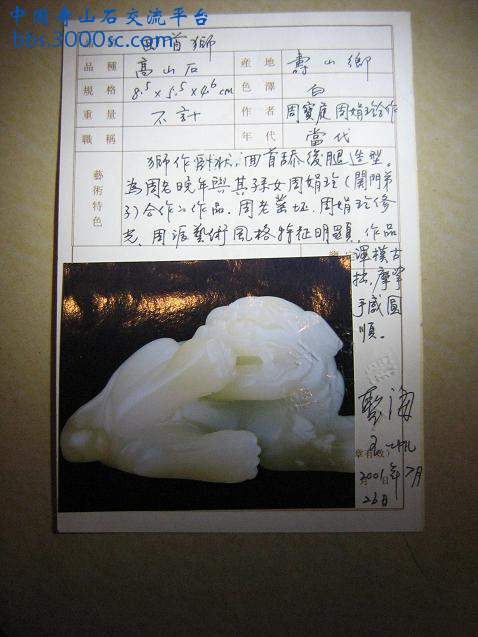 中国寿山石交流平台
bbs.3000sc.com
回首獅
品種 高山石 産地 壽山鄉
規格 8.5×5.5×4.6cm 色澤 白
重量 不計 作者 周寶庭 周娟玲合作
職稱 年代 當代
藝術特色
獅作卧狀,回首舔後腿造型。
為周老晚年與其孫女周娟玲(關門弟
子)合作之作品。周老鑿坯,周娟玲修
光,周派藝術風格特征明顯,作品
渾樸古
拙,摩挲
手感圓
順。
2001年7月
23日